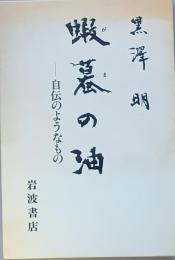 黒澤明
蝦蟇の油
がま
――自伝のようなもの
岩波書店